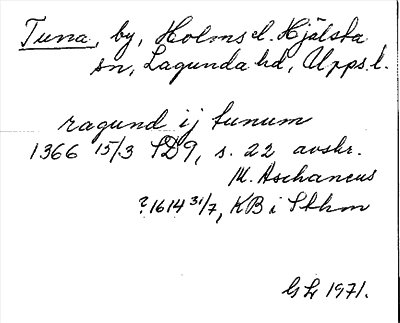 Tuna, by, Holms el. Hjälsta
sn, Lagunda hd, Upps. l.
ragund ij tunum
1366 15/3 SD9, s. 22 avskr.
M. Aschaneus
?1614 31/7, KB i Sthm
GL 1971.